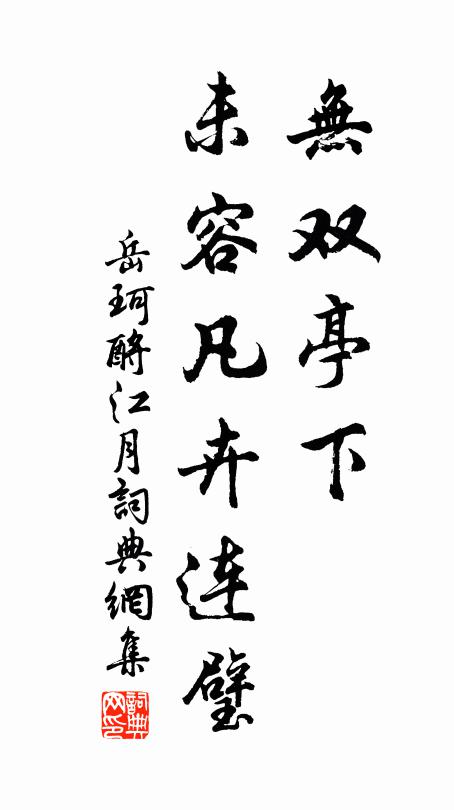 無双亭下
未容凡卉连璧
岳珂酹江月詞典網集
詞典网印